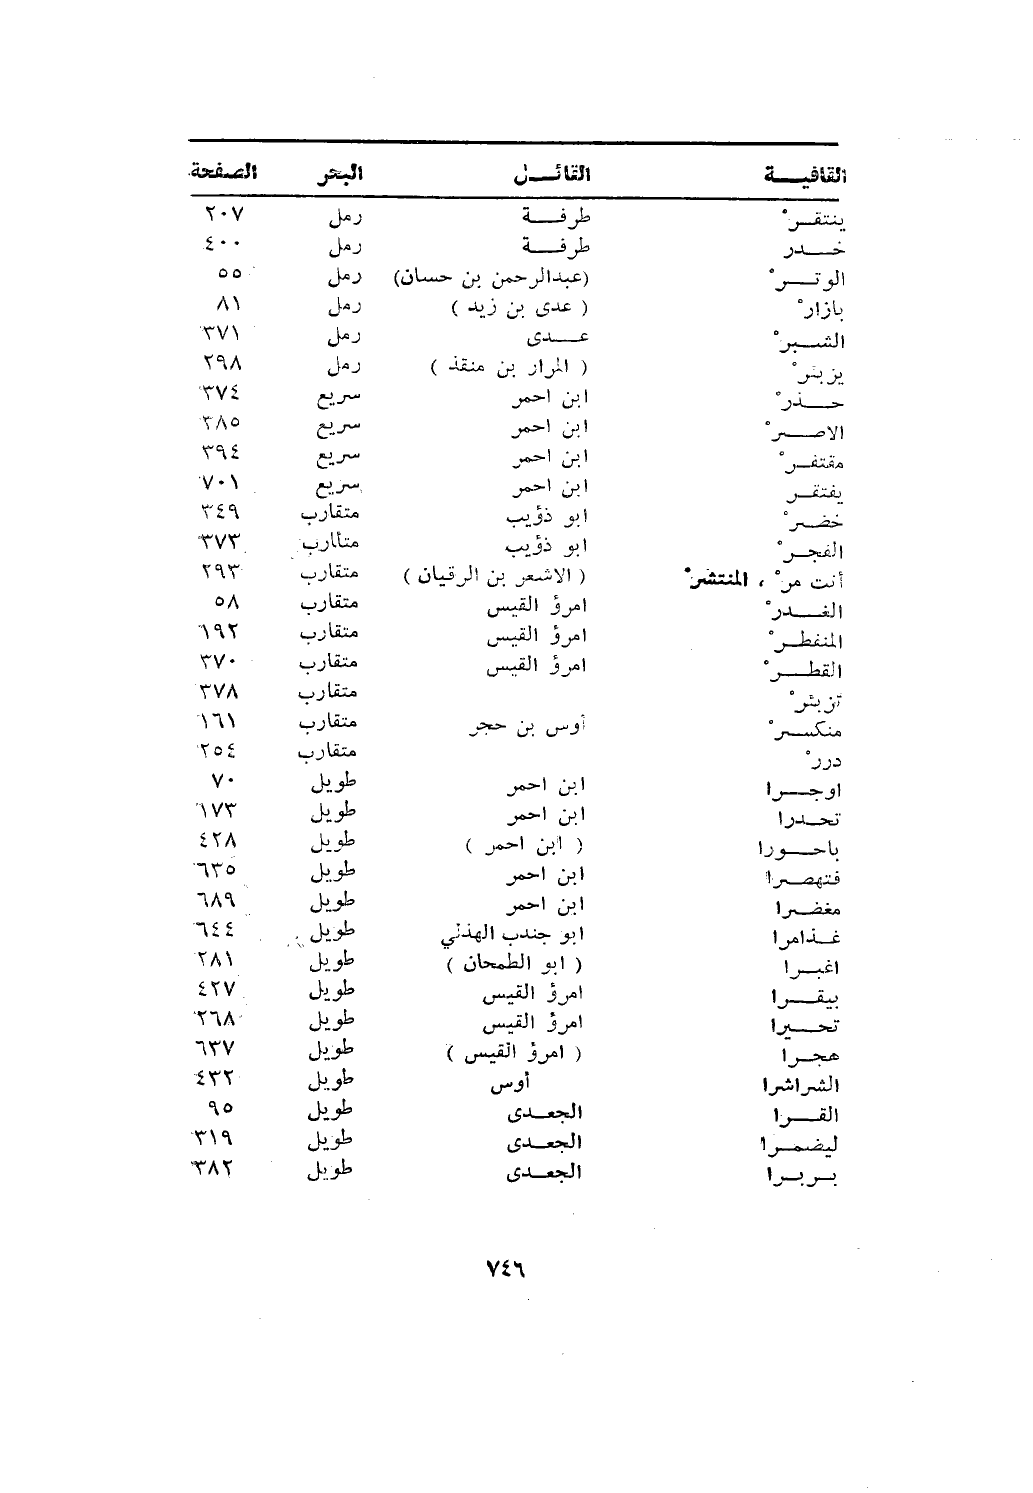 القافيـــة القائـــل البحر الصفحة
ينتقرْ طرفـــة رمل ٢٠٧
خـــدر طرفـــة رمل ٤٠٠
الوتـــرْ (عبدالرحمن بن حسان) رمل ٥٥
بازارْ ( عدى بن زيد ) رمل ٨١
الشبـرْ عـــدى رمل ٣٧١
يزبئرْ ( المرار بن منقذ ) رمل ٢٩٨
حـــذرْ ابن احمر سريع ٣٧٤
الاصـــرْ ابن احمر سريع ٣٨٥
مقتفـرْ ابن احمر سريع ٣٩٤
يفتقـر ابن احمر سريع ٧٠١
خضـرْ ابو ذؤيب متقارب ٣٤٩
الفجـرْ ابو ذؤيب متأارب ٣٧٣
أنت مرْ ، المنتشرْ ( الاشعر بن الرقيان ) متقارب ٢٩٣
الغـــدرْ امرؤ القيس متقارب ٥٨
المنفطـرْ امرؤ القيس متقارب ١٩٢
القطـــرْ امرؤ القيس متقارب ٣٧٠
تزبئرْ متقارب ٣٧٨
منكســرْ أوس بن حجر متقارب ١٦١
دررْ متقارب ٢٥٤
اوجـــرا ابن احمر طويل ٧٠
تحـدرا ابن احمر طويل ١٧٣
باحـــورا ( ابن احمر ) طويل ٤٢٨
فتهصـرا ابن احمر طويل ٦٣٥
مغضـرا ابن احمر طويل ٦٨٩
غـذامرا ابو جندب الهذلي طويل ٦٤٤
اغبـرا ( ابو الطمحان ) طويل ٢٨١
بيقـــرا امرؤ القيس طويل ٤٢٧
تحـــيرا امرؤ القيس طويل ٢٦٨
هجـرا ( امرؤ القيس ) طويل ٦٣٧
الشراشرا أوس طويل ٤٣٢
القـــرا الجعـدى طويل ٩٥
ليضمـرا الجعـدى طويل ٣١٩
بـربـرا الجعـدى طويل ٣٨٢
٧٤٦